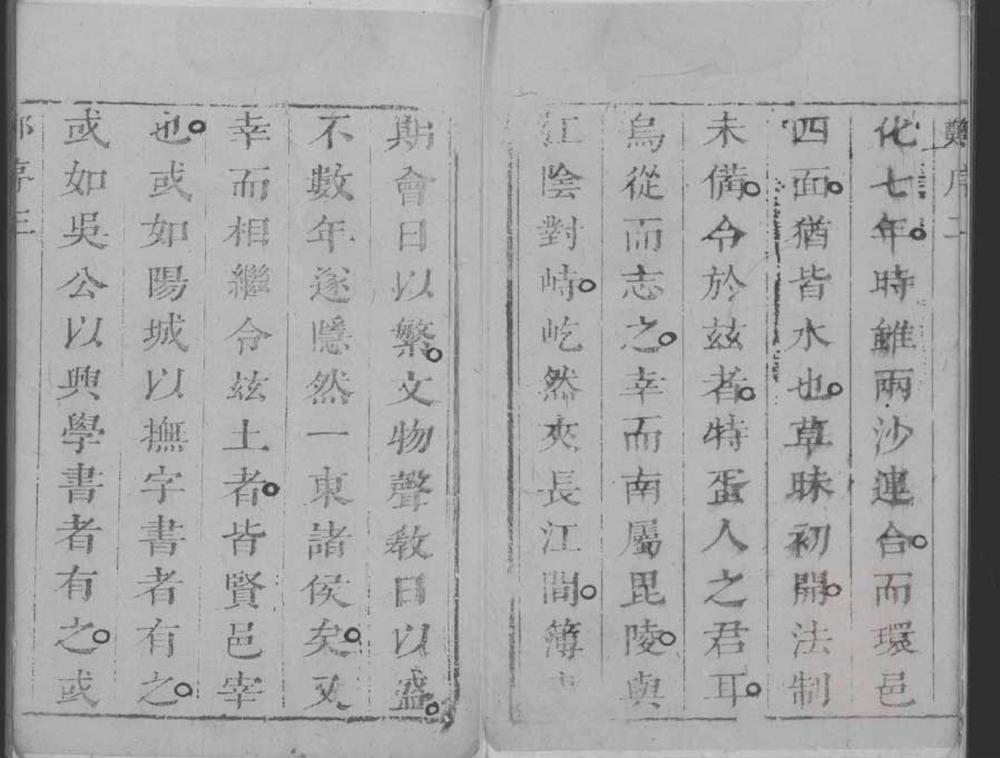 序二
化七年。時雖兩沙連合。而環邑
四面。猶皆水也。草昧初開。法制
未備。令於茲者。特蛋人之君耳。
烏從而志之。幸而南屬毘陵。與
江陰對峙。屹然夾長江間。簿
期會日以繁。文物聲敎日以盛。
不數年遂隱然一東諸侯矣。又
幸而相繼令玆土者。皆賢邑宰
也。或如陽城以撫字書者有之。
或如吳公以興學書者有之。或